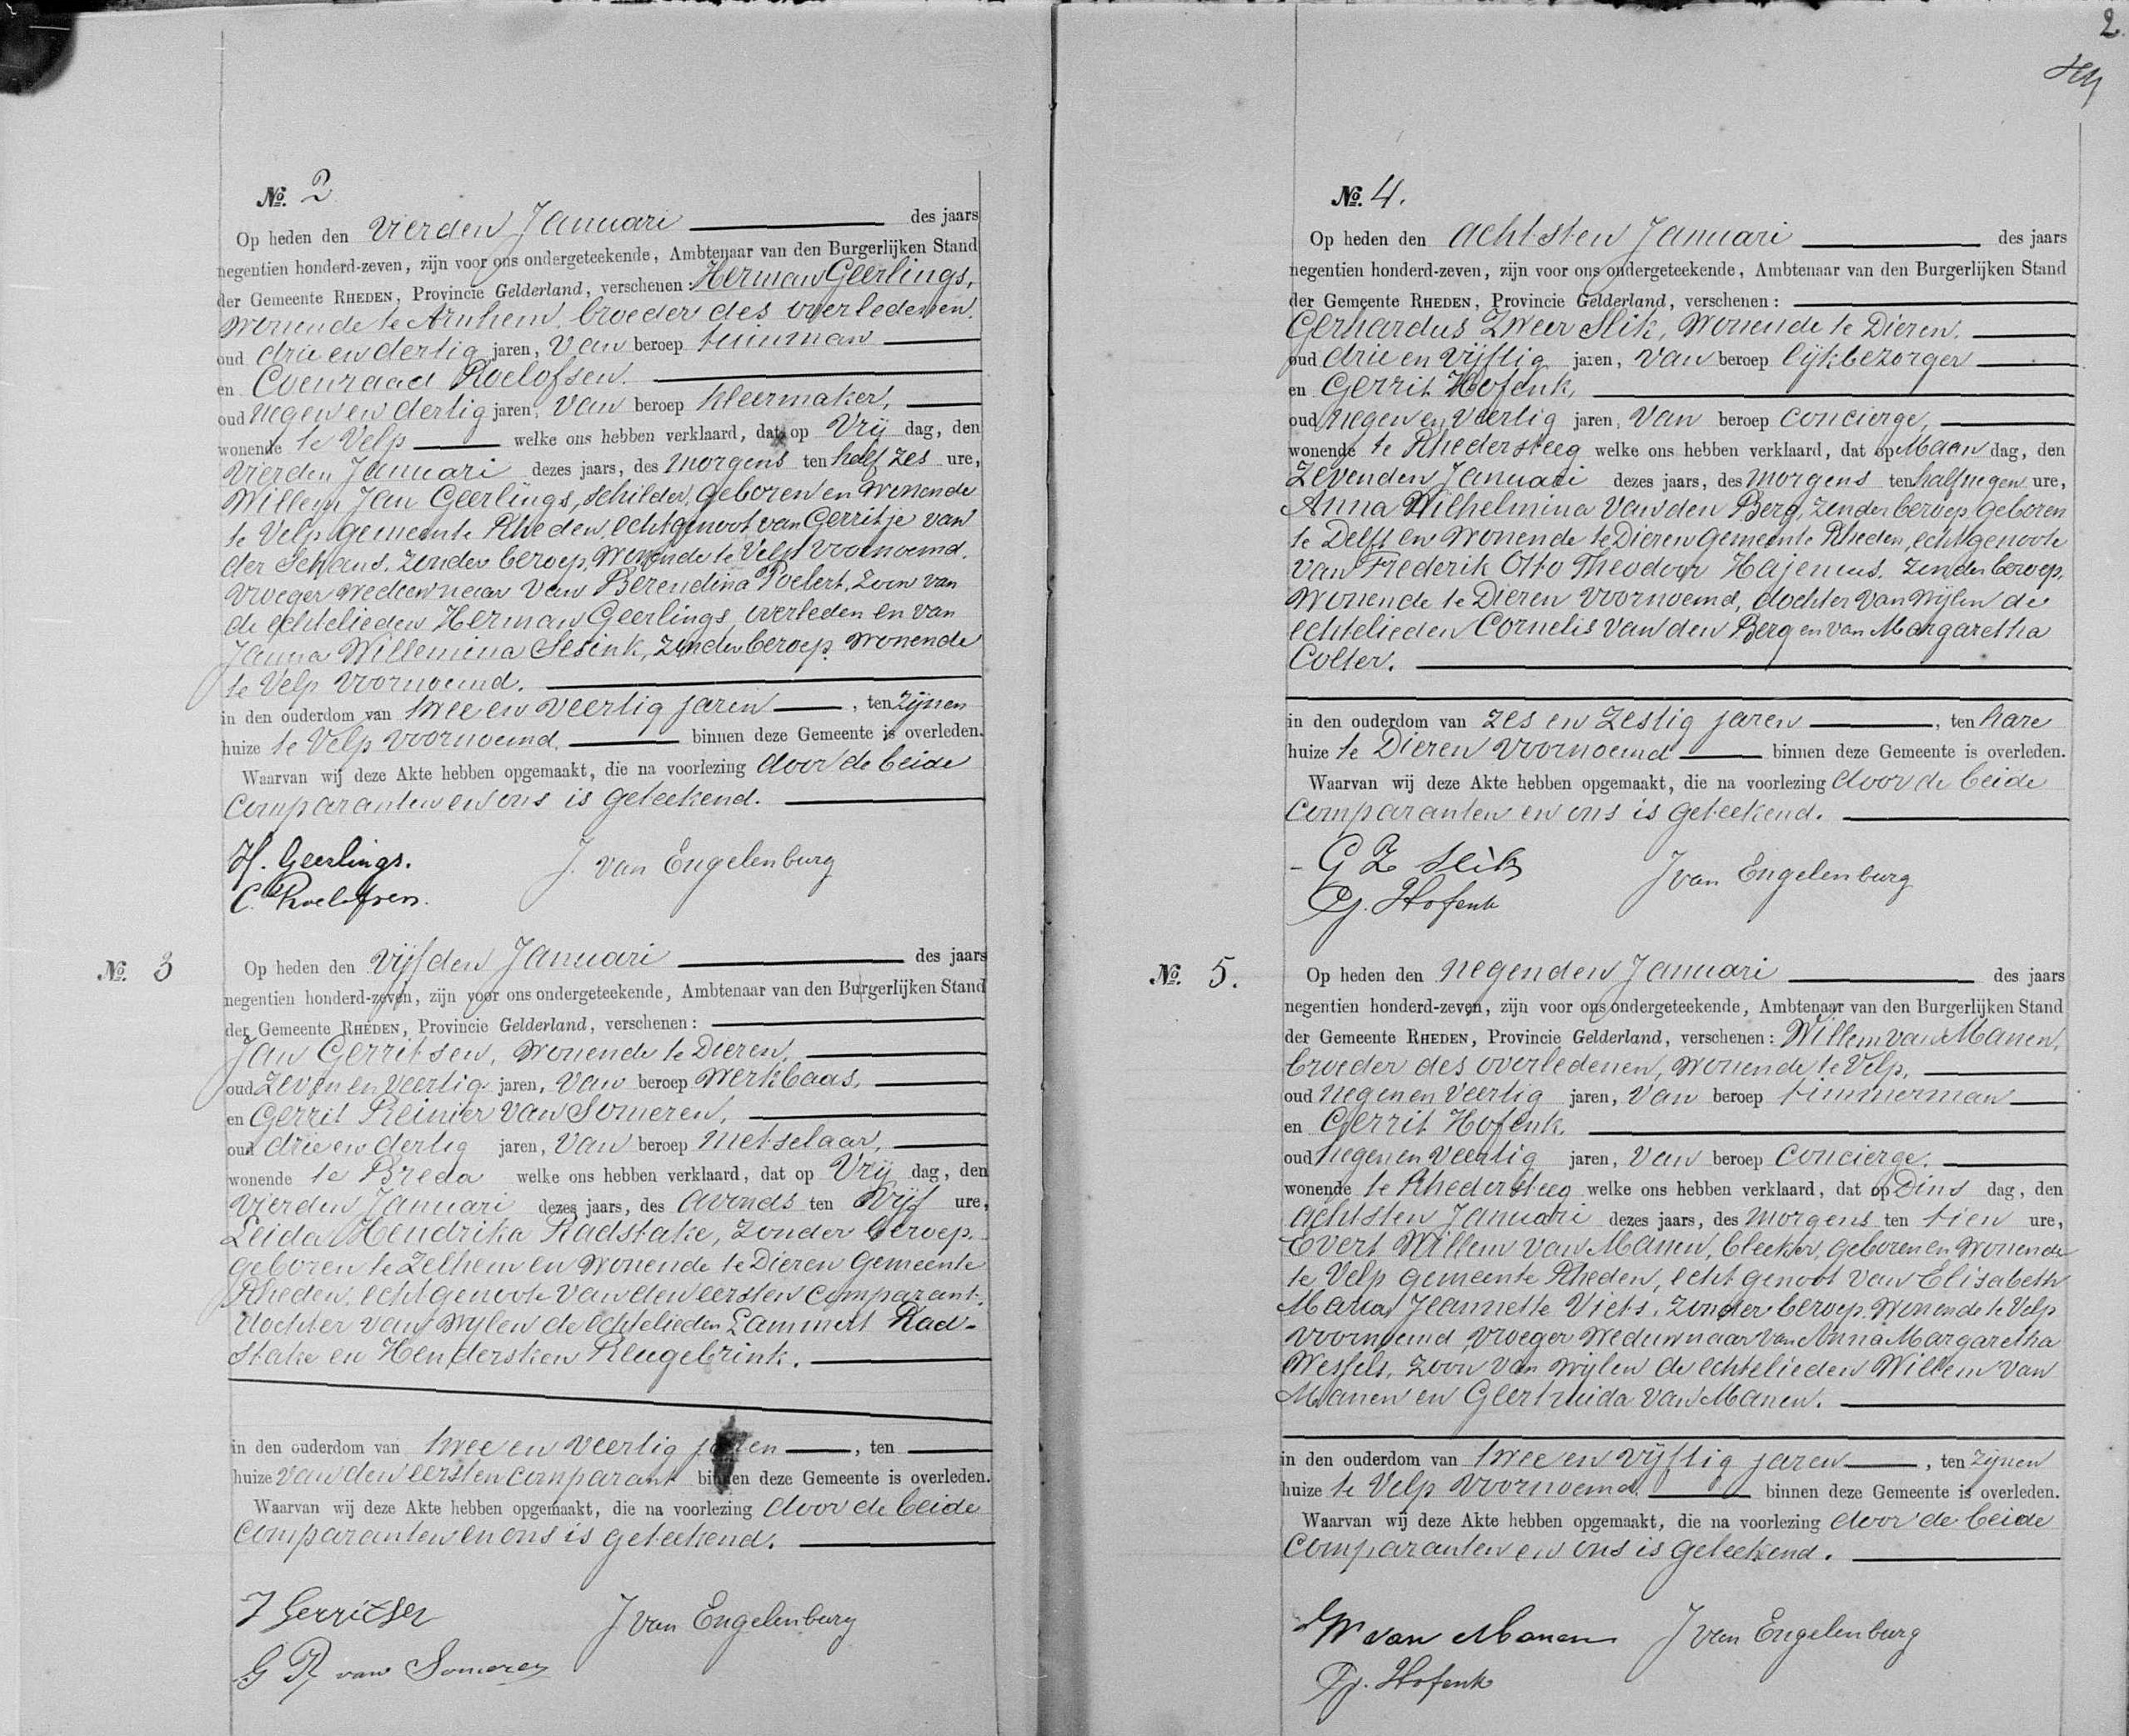 №. 2
Op heden den vierden Januari des jaars
negentien honderd-zeven, zijn voor ons ondergeteekende, Ambtenaar van den Burgerlijken Stand
der Gemeente RHEDEN, Provincie Gelderland, verschenen: Herman Geerlings,
wonende te Arnhem, broeder des overledenen.
oud drie en dertig jaren, van beroep tuinman
en Coenraad Roelofsen.
oud negen en dertig jaren, van beroep kleermaker,
wonende te Velp welke ons hebben verklaard, dat op Vrij dag, den
vierden Januari dezes jaars, des morgens ten half zes ure,
Willem Jan Geerlings, schilder, geboren en wonende
te Velp gemeente Rheden, echtgenoot van Gerritje van
der Schans, zonder beroep, wonende te Velp voornoemd.
vroeger weduwnaar van Berendina Poelert, zoon van
de echtelieden Herman Geerlings, overleden en van
Janna Willemina Sesink, zonder beroep, wonende
te Velp voornoemd.
in den ouderdom van twee en veertig jaren, ten zijnen
huize te Velp voornoemd, binnen deze Gemeente is overleden.
Waarvan wij deze Akte hebben opgemaakt, die na voorlezing door de beide
comparanten en ons is geteekend.
H. Geerlings. J. van Engelenburg
C. Roelofsen.
№. 3
Op heden den vijfden Januari des jaars
negentien honderd-zeven, zijn voor ons ondergeteekende, Ambtenaar van den Burgerlijken Stand
der Gemeente RHEDEN, Provincie Gelderland, verschenen:
Jan Gerritsen, wonende te Dieren,
oud zeven en veertig jaren, van beroep werkbaas,
en Gerrit Reinier van Someren,
oud drie en dertig jaren, van beroep metselaar,
wonende te Breda welke ons hebben verklaard, dat op Vrij dag, den
vierden Januari dezes jaars, des avonds ten vijf ure,
Leida Hendrika Radstake, zonder beroep.
geboren te Zelhem en wonende te Dieren gemeente
Rheden, echtgenoote van den eersten comparant,
dochter van wylen de echtelieden Lammert Rad-
stake en Hendersken Reugebrink.
in den ouderdom van twee en veertig jaren, ten
huize van den eersten comparant binnen deze Gemeente is overleden.
Waarvan wij deze Akte hebben opgemaakt, die na voorlezing door de beide
comparanten en ons is geteekend.
J Gerritsen J van Engelenburg
G R van Someren
2.
№. 4.
Op heden den achtsten Januari des jaars
negentien honderd-zeven, zijn voor ons ondergeteekende, Ambtenaar van den Burgerlijken Stand
der Gemeente RHEDEN, Provincie Gelderland, verschenen:
Gerhardus Zweer Slik, wonende te Dieren.
oud drie en vijftig jaren, van beroep lijkbezorger
en Gerrit Hofenk,
oud negen en veertig jaren, van beroep concierge,
wonende te Rhedersteeg welke ons hebben verklaard, dat op Maan dag, den
zevenden Januari dezes jaars, des morgens ten half negen ure,
Anna Wilhelmina van den Berg, zonder beroep, geboren
te Delft en wonende te Dieren gemeente Rheden, echtgenoote
van Frederik Otto Theodoor Hajenius, zonder beroep,
wonende te Dieren voornoemd, dochter van wijlen de
echtelieden Cornelis van den Berg en van Margaretha
Colter.
in den ouderdom van zes en zestig jaren, ten hare
huize te Dieren voornoemd binnen deze Gemeente is overleden.
Waarvan wij deze Akte hebben opgemaakt, die na voorlezing door de beide
comparanten en ons is geteekend.
G Z Slik J van Engelenburg
G. Hofenk
№. 5.
Op heden den negenden Januari des jaars
negentien honderd-zeven, zijn voor ons ondergeteekende, Ambtenaar van den Burgerlijken Stand
der Gemeente RHEDEN, Provincie Gelderland, verschenen: Willem van Manen,
broeder des overledenen, wonende te Velp,
oud negen en veertig jaren, van beroep timmerman
en Gerrit Hofenk,
oud negen en veertig jaren, van beroep concierge.
wonende te Rhedersteeg welke ons hebben verklaard, dat op Dins dag, den
achtsten Januari dezes jaars, des morgens ten tien ure,
Evert Willem van Manen, bleeker, geboren en wonende
te Velp gemeente Rheden, echtgenoot van Elisabeth
Maria Jeannette Viets, zonder beroep, wonende te Velp
voornoemd, vroeger weduwnaar van Anna Margaretha
Wessels, zoon van wijlen de echtelieden Willem van
Manen en Geertruida van Manen.
in den ouderdom van twee en vijftig jaren, ten zijnen
huize te Velp voornoemd. binnen deze Gemeente is overleden.
Waarvan wij deze Akte hebben opgemaakt, die na voorlezing door de beide
comparanten en ons is geteekend.
W van Manen J van Engelenburg
G. Hofenk